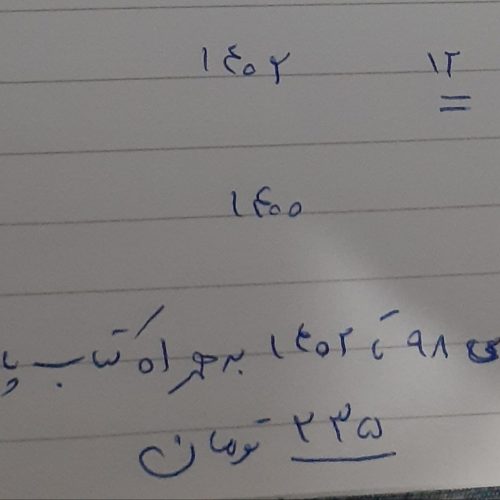 ۱۲ ۱۴۰۲
۱۴۰۰
ی ۹۸ تا ۱۴۰۲ به همراه کتاب پا
۲۳۵ تومان